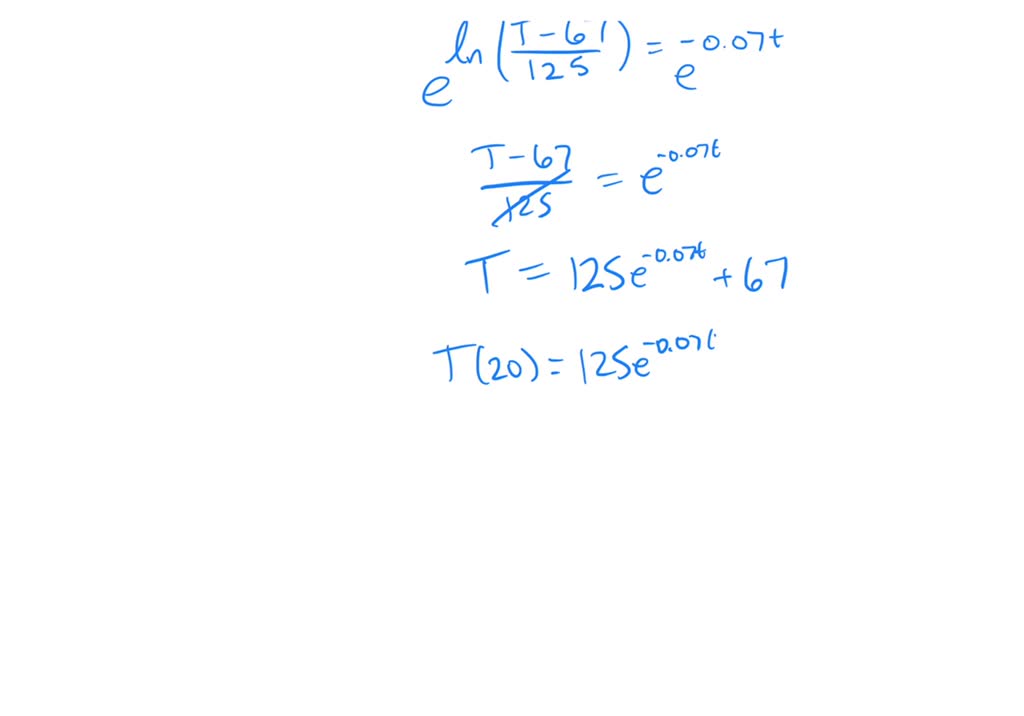 e^ln((T-67)/125) = e^-0.07t
(T-67)/125 = e^-0.07t
T = 125e^-0.07t + 67
T(20) = 125e^-0.07t